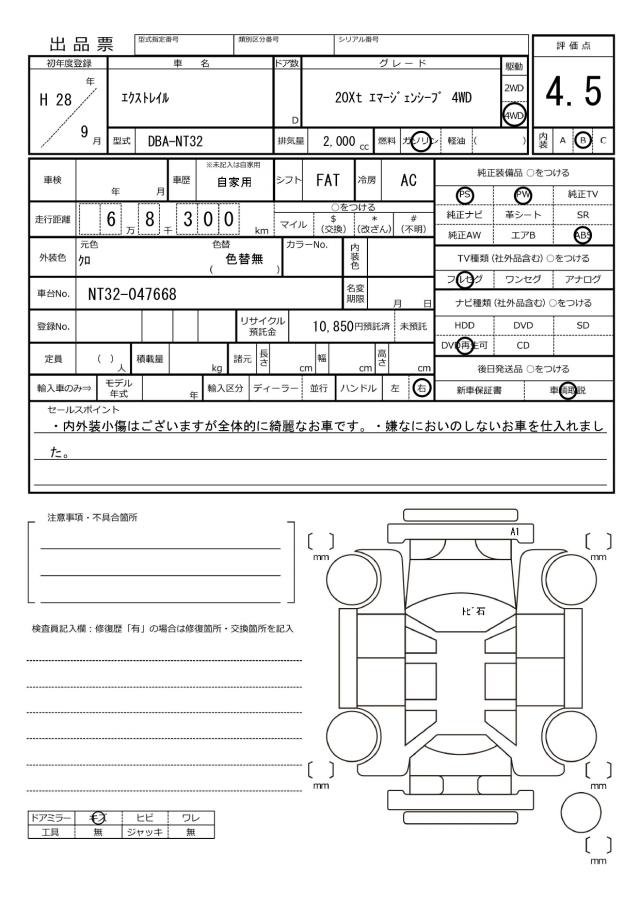 出品票
型式指定番号
類別区分番号
シリアル番号
評価点
初年度登録
車名
ドア数
グレード
駆動
H 28
年
9
月
エクストレイル
D
20Xt エマージェンシーブ 4WD
2WD
4WD
4.5
型式
DBA-NT32
排気量
2,000 cc
燃料
ガソリン
軽油
( )
内装
A
B
C
車検
年
月
車歴
※未記入は自家用
自家用
シフト
FAT
冷房
AC
純正装備品 ○をつける
PS
PW
純正TV
純正ナビ
革シート
SR
純正AW
エアB
ABS
走行距離
6 万 8 千 3 0 0 km
○をつける
マイル
$ (交換)
* (改ざん)
# (不明)
外装色
元色
クロ
色替
( 色替無 )
カラーNo.
内装色
TV種類 (社外品含む) ○をつける
フルセグ
ワンセグ
アナログ
車台No.
NT32-047668
名変期限
月
日
ナビ種類 (社外品含む) ○をつける
HDD
DVD
SD
DVD再生可
CD
登録No.
リサイクル預託金
10,850円預託済
未預託
定員
( ) 人
積載量
kg
諸元
長さ
cm
幅
cm
高さ
cm
後日発送品 ○をつける
新車保証書
車輌取説
輸入車のみ⇒
モデル年式
年
輸入区分
ディーラー
並行
ハンドル
左
右
セールスポイント
・内外装小傷はございますが全体的に綺麗なお車です。・嫌なにおいのしないお車を仕入れまし
た。
注意事項・不具合箇所
検査員記入欄：修復歴「有」の場合は修復箇所・交換箇所を記入
A1
トビ石
mm
mm
mm
mm
mm
ドアミラー
キズ
ヒビ
ワレ
工具
無
ジャッキ
無